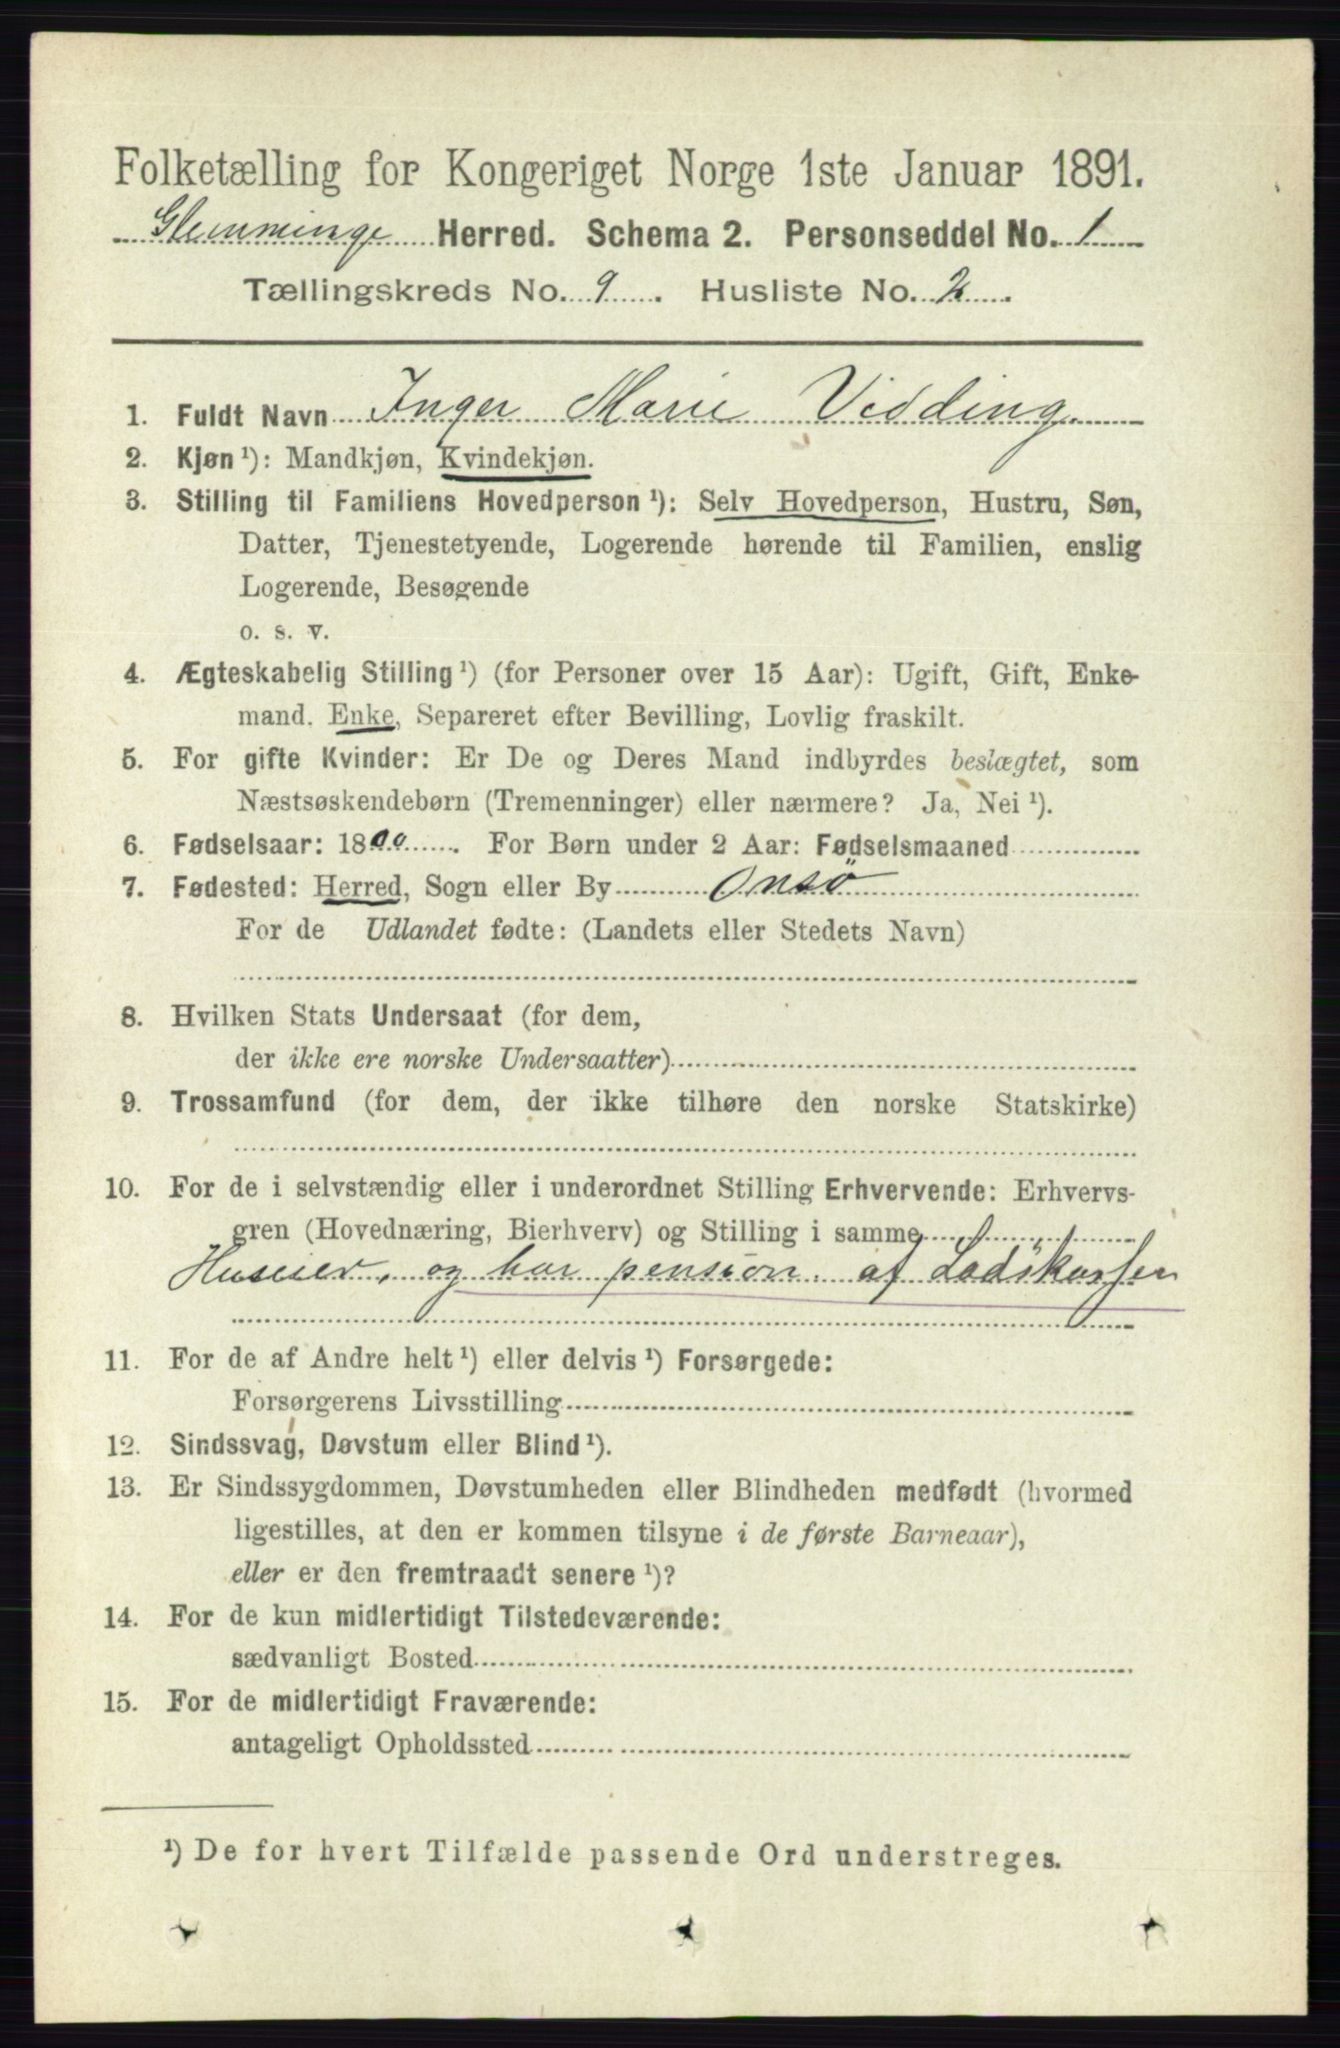 Folketælling for Kongeriget Norge 1ste Januar 1891.
Glemminge Herred. Schema 2. Personseddel No. 1
Tællingskreds No. 9 . Husliste No. 2 .
1. Fuldt Navn Inger Marie Vidding
2. Kjøn ¹): Mandkjøn, Kvindekjøn.
3. Stilling til Familiens Hovedperson ¹): Selv Hovedperson, Hustru, Søn,
Datter, Tjenestetyende, Logerende hørende til Familien, enslig
Logerende, Besøgende
o. s. v.
4. Ægteskabelig Stilling ¹) (for Personer over 15 Aar): Ugift, Gift, Enke-
mand. Enke, Separeret efter Bevilling, Lovlig fraskilt.
5. For gifte Kvinder: Er De og Deres Mand indbyrdes beslægtet, som
Næstsøskendebørn (Tremenninger) eller nærmere? Ja, Nei ¹).
6. Fødselsaar: 1800 . For Børn under 2 Aar: Fødselsmaaned
7. Fødested: Herred, Sogn eller By Onsö
For de Udlandet fødte: (Landets eller Stedets Navn)
8. Hvilken Stats Undersaat (for dem,
der ikke ere norske Undersaatter)
9. Trossamfund (for dem, der ikke tilhøre den norske Statskirke)
10. For de i selvstændig eller i underordnet Stilling Erhvervende: Erhvervs-
gren (Hovednæring, Bierhverv) og Stilling i samme
Huseier, og har pension af Lodskassen
11. For de af Andre helt ¹) eller delvis ¹) Forsørgede:
Forsørgerens Livsstilling
12. Sindssvag, Døvstum eller Blind ¹).
13. Er Sindssygdommen, Døvstumheden eller Blindheden medfødt (hvormed
ligestilles, at den er kommen tilsyne i de første Barneaar),
eller er den fremtraadt senere ¹)?
14. For de kun midlertidigt Tilstedeværende:
sædvanligt Bosted
15. For de midlertidigt Fraværende:
antageligt Opholdssted
¹) De for hvert Tilfælde passende Ord understreges.